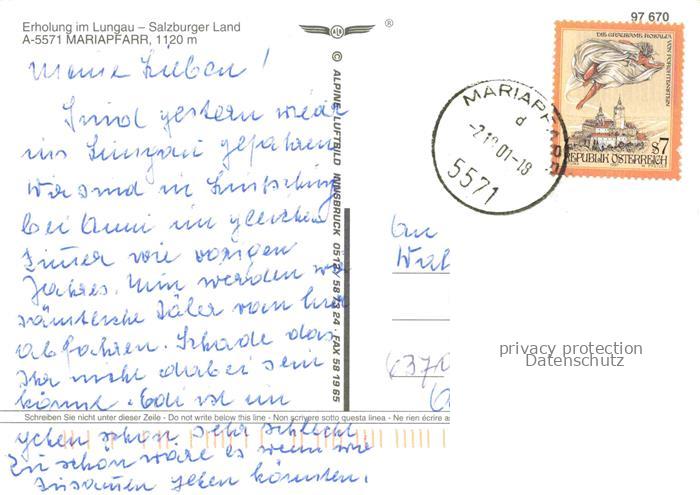 Erholung im Lungau – Salzburger Land
A-5571 MARIAPFARR, 1120 m
Meine Lieben!
Sind gestern wieder
ins Lungau gefahren
Wir sind in
bei Anni im gleichen
Zimer wie vorigen
Jahres. Nun werden wir
sämtliche Täler von hier
abfahren. Schade das
Ihr nicht dabei sein
könnt. Edi ist im
gehen schon sehr schlecht
Zu schön wäre es wenn wir
zusamen gehen könnten.
Schreiben Sie nicht unter dieser Zeile - Do not write below this line - Non scrivere sotto questa linea - Ne rien écrire a
ALD ®
© ALPINE LUFTBILD INNSBRUCK 0512/58 73 24 · FAX 58 19 85
97 670
DIE GRAUSAME ROSALIA VON FORCHTENSTEIN
S7
REPUBLIK ÖSTERREICH
MARIAPF
d
01-18
5571
An
637
privacy protection
Datenschutz